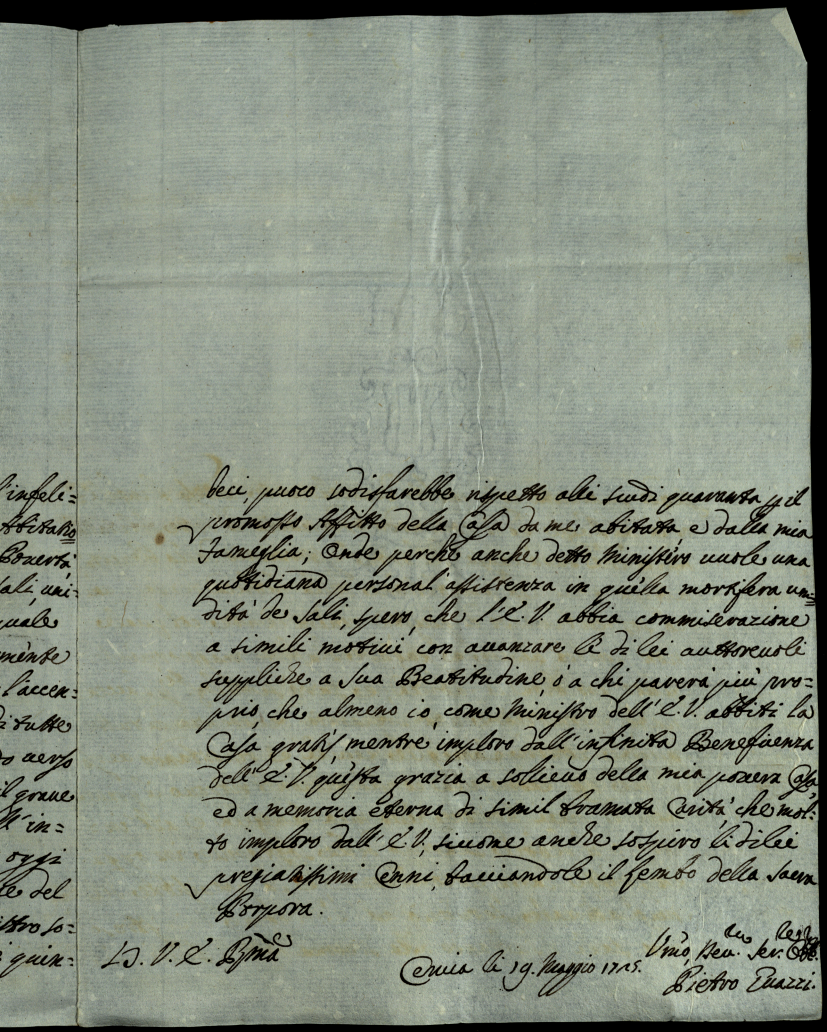 l'infeli=
Abitatio
Povertà
sali, umi=
quale
mente
l'accen=
di tutte
do verso
il grave
ll'in=
oggi
le del
stro so=
i quin=
deci, puoco sodisfarebbe rispetto alli scudi quaranta p il
promosso Affitto della Casa da me abitata e dalla mia
Fameglia; Onde perche anche detto Ministero vuole una
quotidiana personal'assistenza in quella mortifera umi=
dità de Sali, spero, che l'E. V. abbia commiserazione
a simili motivi con avanzare le di lei auttorevoli
suppliche a Sua Beatitudine, ò a chi parerà più pro=
prio, che almeno io, come Ministro dell'E. V. abbiti la
Casa gratis, mentre imploro dall'infinita Beneficenza
dell'E. V. questa grazia a sollievo della mia povera Casa
ed a memoria eterna di simil bramata Carità, che mol=
to imploro dall'E. V., siccome anche sospiro li di lei
pregiatissimi Cenni, bacciandole il lembo della Sacra
Porpora.
D. V. E. Rma
Cervia li 19. Maggio 1725.
Umo, Dev. Ser.
Pietro